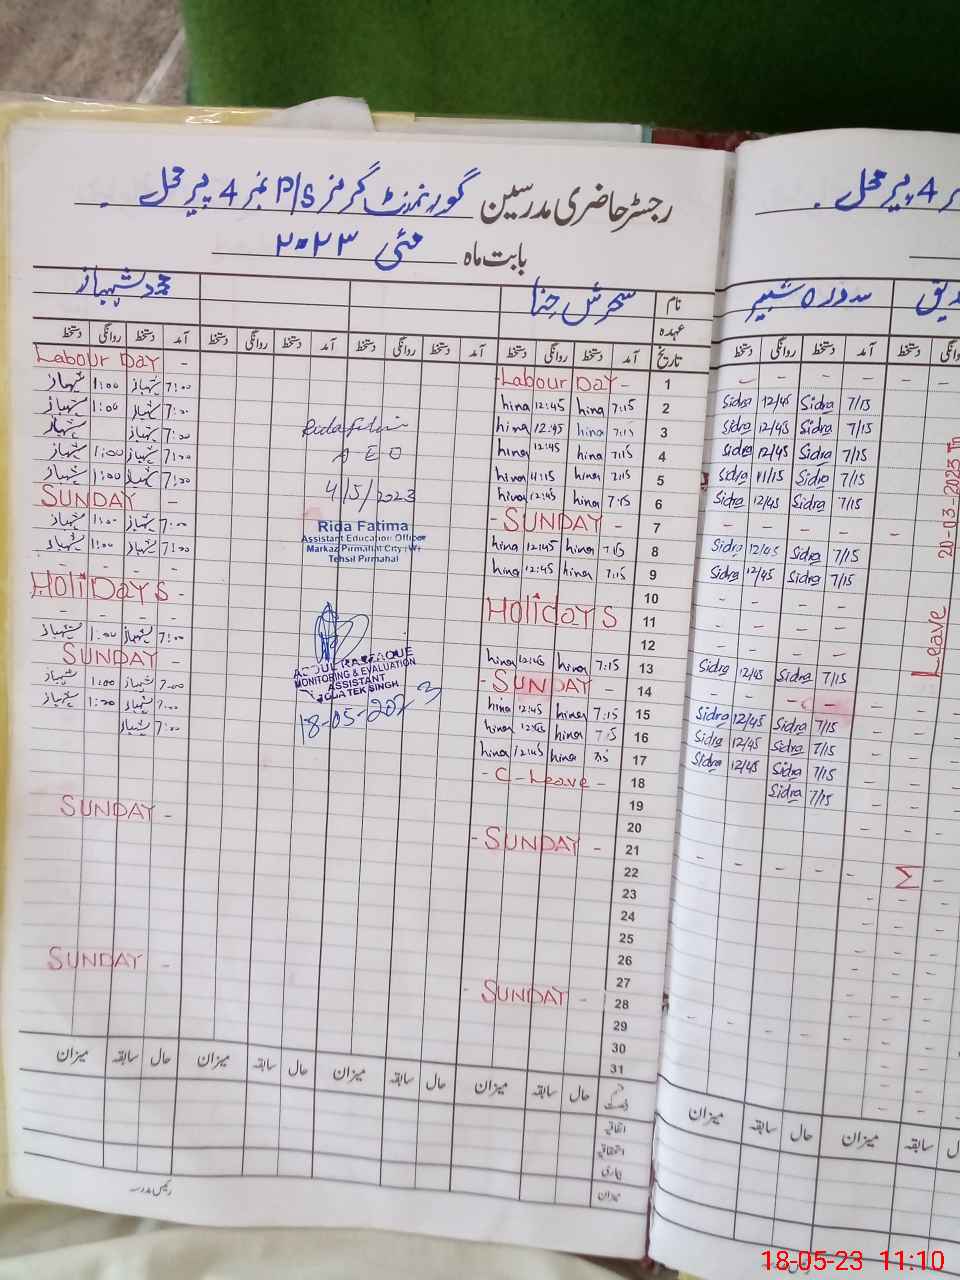 رجسٹر حاضری مدرسین گورنمنٹ گرلز P/S نمبر 4 پیر محل
بابت ماہ مئی ۲۰۲۳
نام سحرش حنا محمد شہباز
عہدہ
تاریخ آمد دستخط روانگی دستخط آمد دستخط روانگی دستخط آمد دستخط روانگی دستخط آمد دستخط روانگی دستخط
1 - Labour DAY - Labour DAY -
2 7:15 hina 12:45 hina 7:00 شہباز 1:00 شہباز
3 7:15 hina 12:45 hina 7:00 شہباز 1:00 شہباز
4 7:15 hina 12:45 hina 7:00 شہباز شہباز
5 7:15 hina 11:15 hina 7:00 شہباز 1:00 شہباز
6 7:15 hina 12:45 hina 7:00 شہباز 1:00 شہباز
7 - SUNDAY - SUNDAY -
8 7:15 hina 12:45 hina 7:00 شہباز 1:00 شہباز
9 7:15 hina 12:45 hina 7:00 شہباز 1:00 شہباز
10
11 HolidAYS HoliDAYS -
12
13 7:15 hina 12:45 hina 7:00 شہباز 1:00 شہباز
14 - SUNDAY - SUNDAY -
15 7:15 hina 12:45 hina 7:00 شہباز 1:00 شہباز
16 7:15 hina 12:45 hina 7:00 شہباز 1:00 شہباز
17 7:15 hina 12:45 hina 7:00 شہباز
18 - C - Leave -
19
20
21 - SUNDAY - SUNDAY -
22
23
24
25
26
27
28 - SUNDAY - SUNDAY -
29
30
31
A E O
4/5/2023
Rida Fatima
Assistant Education Officer
Markaz Pirmahal City (W)
Tehsil Pirmahal
MONITORING & EVALUATION
ASSISTANT
TOBA TEK SINGH
18-05-2023
حال سابقہ میزان حال سابقہ میزان حال سابقہ میزان حال سابقہ میزان
اتفاقیہ
استحقاقیہ
بیماری
میزان
رئیس مدرسہ
4 پیر محل
سدرہ شبیر
آمد دستخط روانگی دستخط
7/15 Sidra 12/45 Sidra
7/15 Sidra 12/45 Sidra
7/15 Sidra 12/45 Sidra
7/15 Sidra 11/15 Sidra
7/15 Sidra 12/45 Sidra
7/15 Sidra 12/45 Sidra
7/15 Sidra 12/45 Sidra
7/15 Sidra 12/45 Sidra
7/15 Sidra 12/45 Sidra
7/15 Sidra 12/45 Sidra
7/15 Sidra 12/45 Sidra
7/15 Sidra
20-03-2023
Leave
میزان سابقہ حال میزان سابقہ
18-05-23 11:10